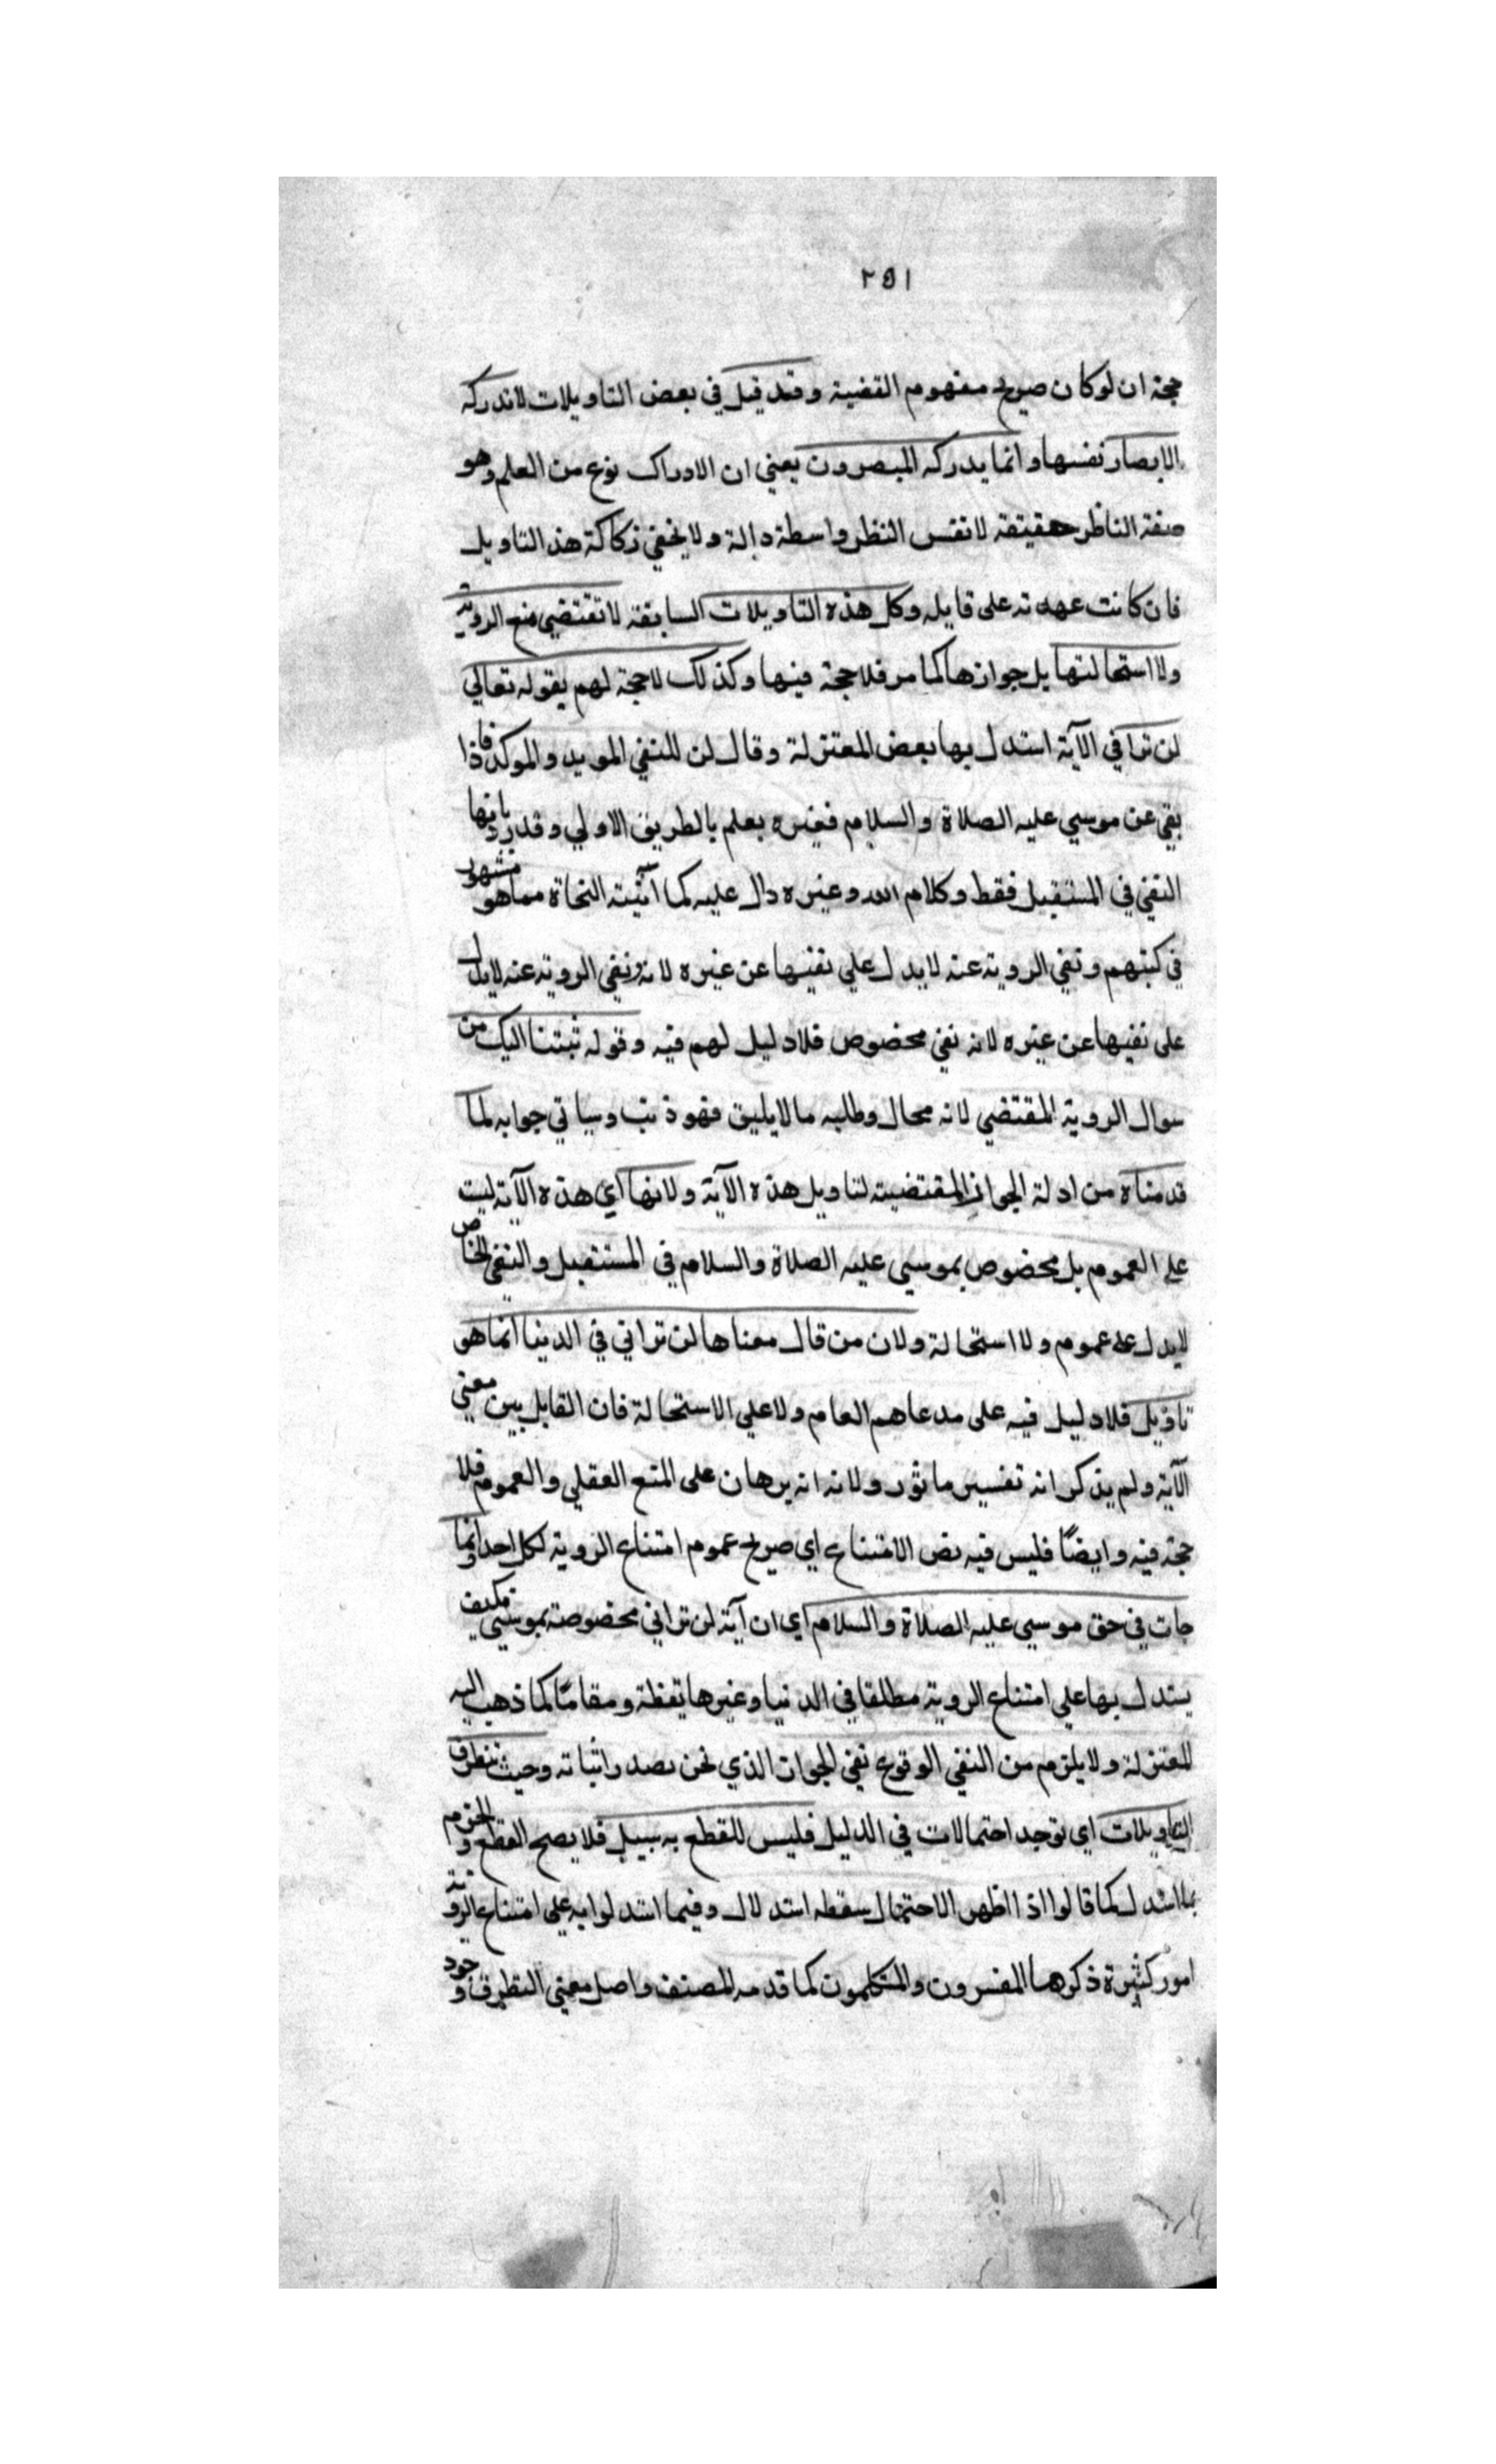 ٢٥١
حجة ان لو كان صريح مفهوم القضية وقد قيل في بعض التاويلات لا تدركه
الابصار نفسها وانما يدركه المبصرون يعني ان الادراك نوع من العلم وهو
صفة الناظر حقيقة لا نفس النظر واسطة دالة ولا يخفي زكاكة هذ التاويل
فان كانت عهدته على قايله وكل هذه التاويلات السابقة لا تقتضي منع الروية
ولا استحالتها بل جوازها كما مر فلا حجة فيها وكذلك لا حجة لهم بقوله تعالي
لن تراني الآية استدل بها بعض المعتزلة وقال لن للنفي الموبد والموكد فاذا
بقي عن موسي عليه الصلاة والسلام فغيره يعلم بالطريق الاولي وقد رد بانها
النفي في المستقبل فقط وكلام الله وغيره دال عليه كما اثبته النحاة مما هو مشهور
في كتبهم ونفي الروية عنه لا يدل علي نفيها عن غيره لانه ونفي الروية عنه لا يدل
على نفيها عن غيره لانه نفي مخصوص فلا دليل لهم فيه وقوله تبتنا اليك من
سوال الروية المقتضي لانه محال وطلبه ما لا يليق فهو ذنب وسياتي جوابه لما
قدمناه من ادلة الجواز المقتضية لتاويل هذه الآية ولانها اي هذه الآية ليت
على العموم بل مخصوص بموسي عليه الصلاة والسلام في المستقبل والنفي الخاص
لا يدل على عموم ولا استحالة ولان من قال معناها لن تراني في الدنيا انما هو
تاويل فلا دليل فيه على مدعاهم العام ولا علي الاستحالة فان القايل بين معني
الآية ولم يذكر انه تفسير ماثور ولانه انه برهان على المنع العقلي والعموم فلا
حجة فيه وايضًا فليس فيه نص الامتناع اي صريح عموم امتناع الروية لكل احد وانما
جات في حق موسي عليه الصلاة والسلام اي ان آية لن تراني مخصوصة بموسي فكيف
يستدل بها علي امتناع الروية مطلقا في الدنيا وغيرها يقظة ومقامًا كما ذهب اليه
المعتزلة ولا يلزم من النفي الوقوع نفي الجوات الذي نحن بصدد اثباته وحيث تتطرق
التاويلات اي توجد احتمالات في الدليل فليس للقطع به سبيل فلا يصح القطع والجزم
بما استدل كما قالوا اذا اظهر الاحتمال سقطه استدلال وفيما استدلوا به علي امتناع الروية
امور كثيرة ذكرها المفسرون والمتكلمون كما قدمه المصنف واصل معني التطرق وجود